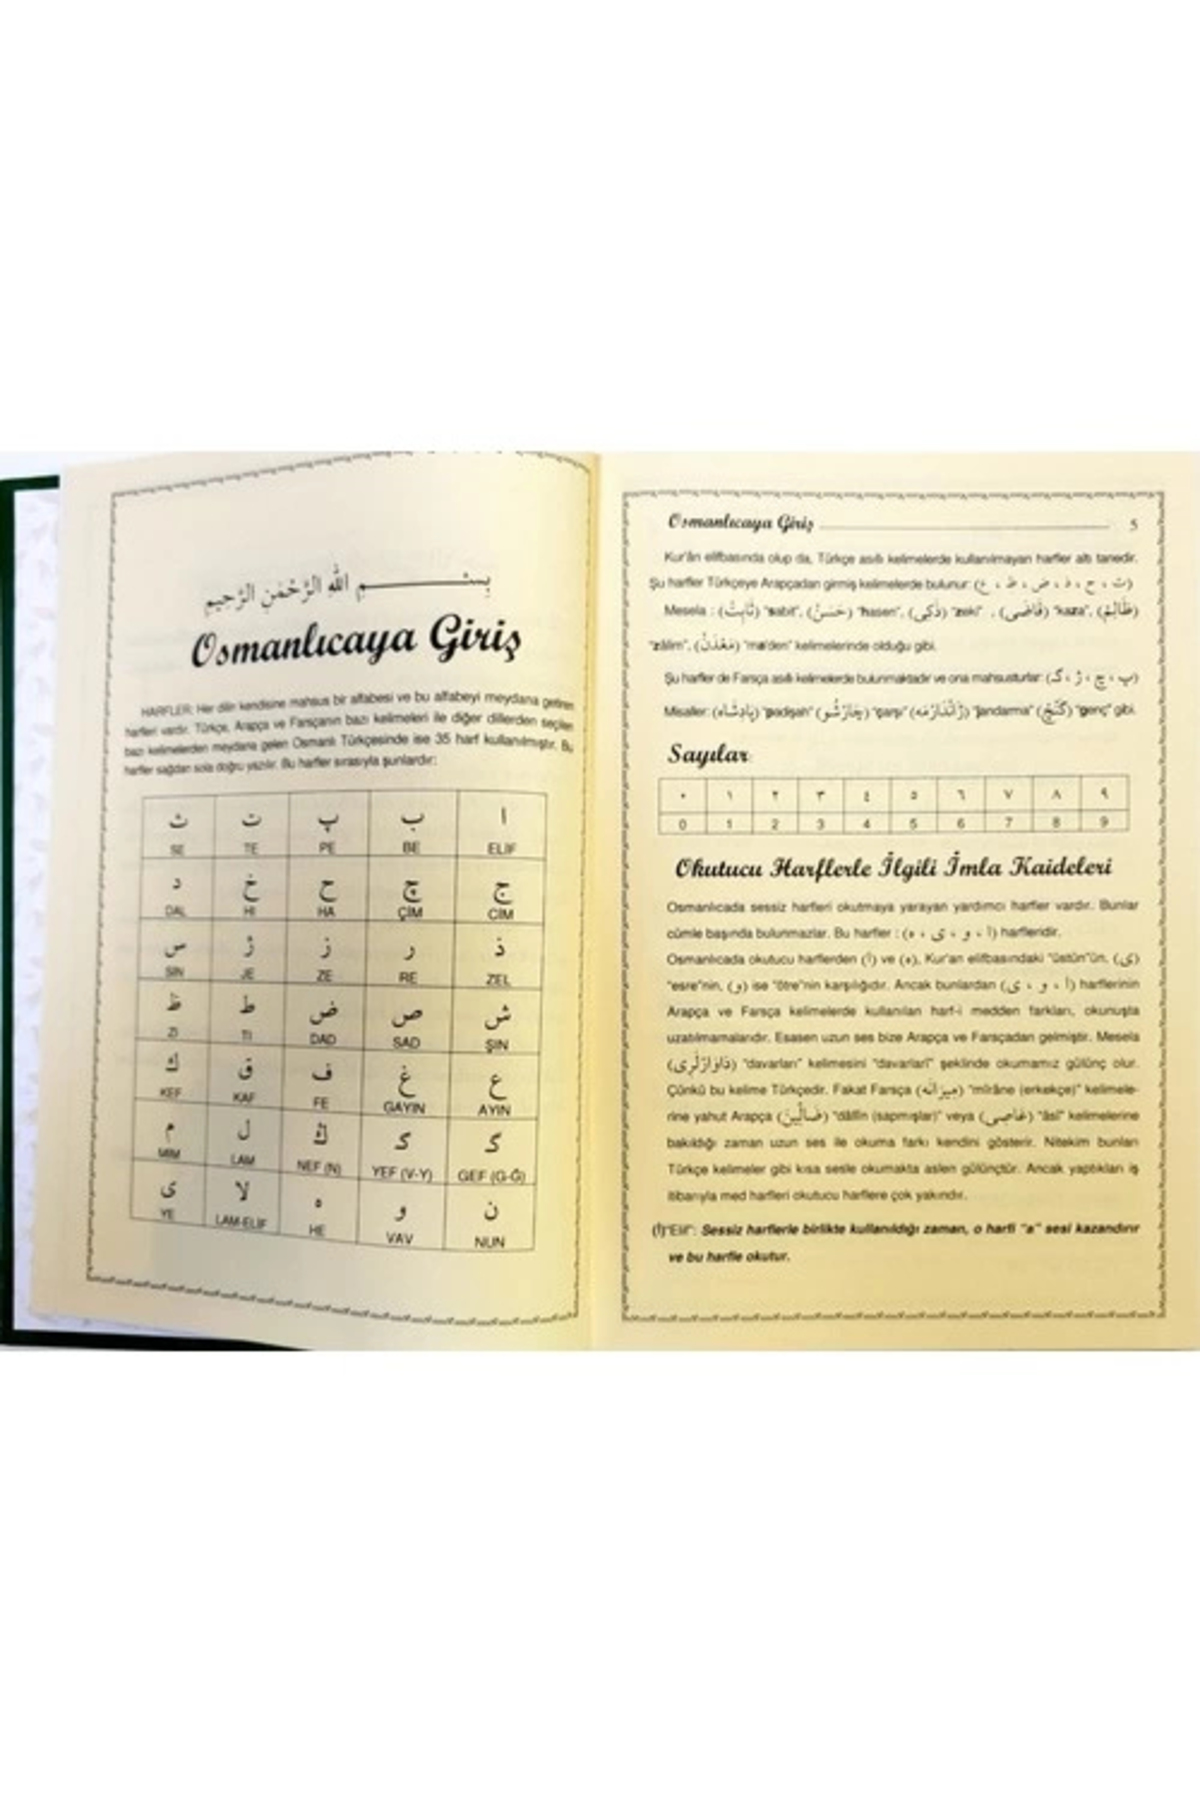 بِسْمِ اللهِ الرَّحْمٰنِ الرَّحِيمِ
Osmanlıcaya Giriş
HARFLER: Her dilin kendisine mahsus bir alfabesi ve bu alfabeyi meydana getiren
harfleri vardır. Türkçe, Arapça ve Farsçanın bazı kelimeleri ile diğer dillerden seçilen
bazı kelimelerden meydana gelen Osmanlı Türkçesinde ise 35 harf kullanılmıştır. Bu
harfler sağdan sola doğru yazılır. Bu harfler sırasıyla şunlardır:
ث ت پ ب ا
SE TE PE BE ELİF
د خ ح چ ج
DAL HI HA ÇİM CİM
س ژ ز ر ذ
SİN JE ZE RE ZEL
ظ ط ض ص ش
ZI TI DAD SAD ŞIN
ك ق ف غ ع
KEF KAF FE GAYIN AYIN
م ل ڭ ﮔ ﮔ
MİM LAM NEF (N) YEF (V-Y) GEF (G-Ğ)
ى لا ه و ن
YE LAM-ELİF HE VAV NUN
Osmanlıcaya Giriş 5
Kur'ân elifbasında olup da, Türkçe asıllı kelimelerde kullanılmayan harfler altı tanedir.
Şu harfler Türkçeye Arapçadan girmiş kelimelerde bulunur: (ث ، ح ، ذ ، ض ، ظ ، ع)
Mesela : (ثَابِتْ) "sabit", (حَسَنْ) "hasen", (ذَكِى) "zeki" , (قَاضِى) "kaza", (ظَالِمْ)
"zâlim", (مَعْدَنْ) "ma'den" kelimelerinde olduğu gibi.
Şu harfler de Farsça asıllı kelimelerde bulunmaktadır ve ona mahsusturlar: (پ ، چ ، ژ ، ﮔ)
Misaller: (پَادِشَاه) "padişah" (چَارْشُو) "çarşı" (ژَانْدَارْمَه) "jandarma" (گَنْچْ) "genç" gibi.
Sayılar
٠ ١ ٢ ٣ ٤ ٥ ٦ ٧ ٨ ٩
0 1 2 3 4 5 6 7 8 9
Okutucu Harflerle İlgili İmla Kaideleri
Osmanlıcada sessiz harfleri okutmaya yarayan yardımcı harfler vardır. Bunlar
cümle başında bulunmazlar. Bu harfler : (ا ، و ، ى ، ه) harfleridir.
Osmanlıcada okutucu harflerden (ا) ve (ه), Kur'an elifbasındaki "üstün"ün, (ى)
"esre"nin, (و) ise "ötre"nin karşılığıdır. Ancak bunlardan (ا ، و ، ى) harflerinin
Arapça ve Farsça kelimelerde kullanılan harf-i medden farkları, okunuşta
uzatılmamalarıdır. Esasen uzun ses bize Arapça ve Farsçadan gelmiştir. Mesela
(دَاوَارْلَرِى) "davarları" kelimesini "davarlarî" şeklinde okumamız gülünç olur.
Çünkü bu kelime Türkçedir. Fakat Farsça (مِيرَانَه) "mîrâne (erkekçe)" kelimele-
rine yahut Arapça (ضَالِّينَ) "dâllîn (sapmışlar)" veya (عَاصِى) "âsî" kelimelerine
bakıldığı zaman uzun ses ile okuma farkı kendini gösterir. Nitekim bunları
Türkçe kelimeler gibi kısa sesle okumakta aslen gülünçtür. Ancak yaptıkları iş
itibarıyla med harfleri okutucu harflere çok yakındır.
(ا)"Elif": Sessiz harflerle birlikte kullanıldığı zaman, o harfi "a" sesi kazandırır
ve bu harfle okutur.